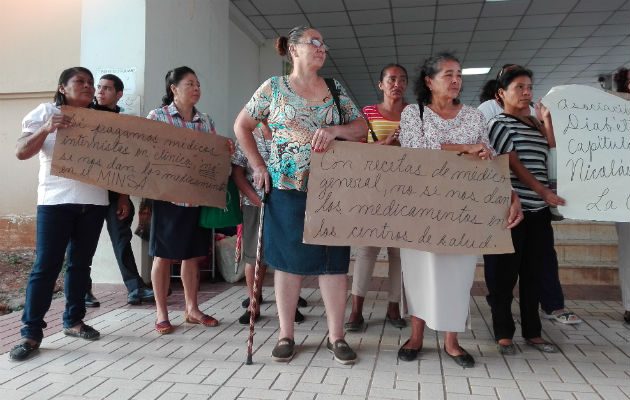 Si pagamos médicos
internistas en clínica, no
se nos dan los medicamento
en el MINSA
Con recetas de médico
general, no se nos dan
los medicamentos en
los centros de salud.
Asociació
Diabét
Capítulo
Nicolás
La C